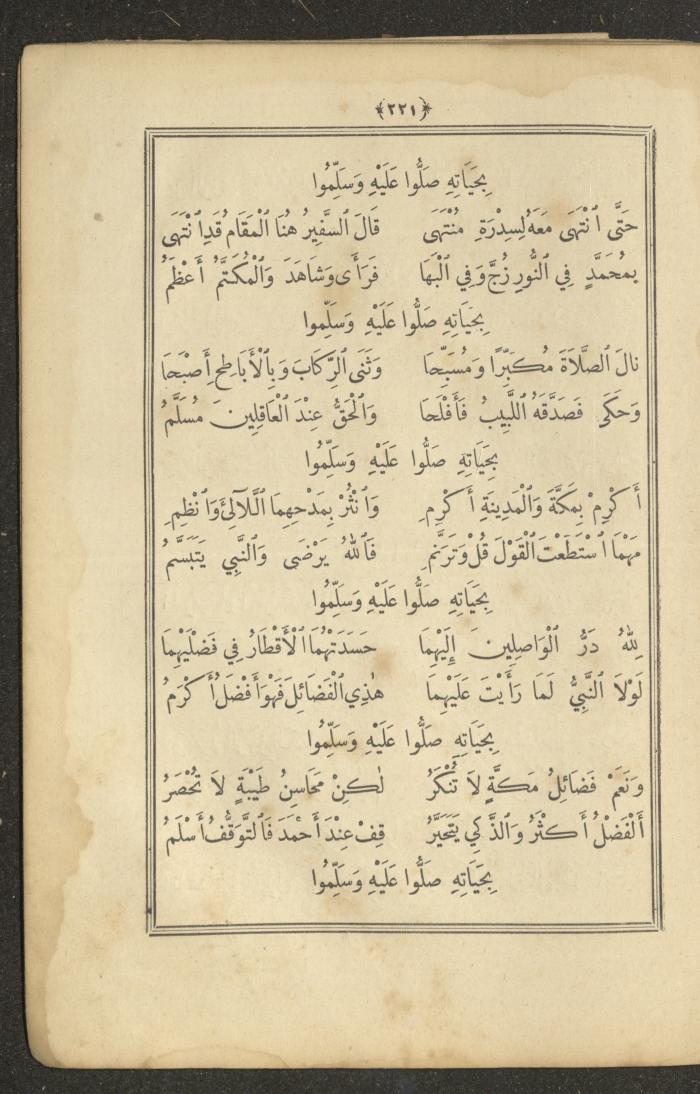 ﴿٢٢١﴾
بِحَيَاتِهِ صَلُّوا عَلَيْهِ وَسَلِّمُوا
حَتَّى ٱنْتَهَى مَعَهُ لِسِدْرَةِ مُنْتَهَى قَالَ ٱلسَّفِيرُ هُنَا ٱلْمَقَامُ قَدِ ٱنْتَهَى
بِمُحَمَّدٍ فِي ٱلنُّورِ زُجَّ وَفِي ٱلْبَهَا فَرَأَى وَشَاهَدَ وَٱلْمُكَتَّمُ أَعْظَمُ
بِحَيَاتِهِ صَلُّوا عَلَيْهِ وَسَلِّمُوا
نالَ ٱلصَّلَاةَ مُكَبِّرًا وَمُسَبِّحَا وَثَنَى ٱلرِّكَابَ وَبِٱلْأَبَاطِحِ أَصْبَحَا
وَحَكَى فَصَدَّقَهُ ٱللَّبِيبُ فَأَفْلَحَا وَٱلْحَقُّ عِنْدَ ٱلْعَاقِلِينَ مُسَلَّمُ
بِحَيَاتِهِ صَلُّوا عَلَيْهِ وَسَلِّمُوا
أَكْرِمْ بِمَكَّةَ وَٱلْمَدِينَةِ أَكْرِمِ وَٱنْثُرْ بِمَدْحِهِمَا ٱللَّآلِئَ وَٱنْظِمِ
مَهْمَا ٱسْتَطَعْتَ ٱلْقَوْلَ قُلْ وَتَرَنَّمِ فَٱللّٰهُ يَرْضَى وَٱلنَّبِي يَتَبَسَّمُ
بِحَيَاتِهِ صَلُّوا عَلَيْهِ وَسَلِّمُوا
لِلّٰهِ دَرُّ ٱلْوَاصِلِينَ إِلَيْهِمَا حَسَدَتْهُمَا ٱلْأَقْطَارُ فِي فَضْلَيْهِمَا
لَوْلَا ٱلنَّبِيُّ لَمَا رَأَيْتَ عَلَيْهِمَا هٰذِي ٱلْفَضَائِلَ فَهْوَ أَفْضَلُ أَكْرَمُ
بِحَيَاتِهِ صَلُّوا عَلَيْهِ وَسَلِّمُوا
وَنَعَمْ فَضَائِلُ مَكَّةٍ لَا تُنْكَرُ لٰكِنْ مَحَاسِنُ طَيْبَةٍ لَا تُحْصَرُ
أَلْفَضْلُ أَكْثَرُ وَٱلذَّكِي يَتَحَيَّرُ قِفْ عِنْدَ أَحْمَدَ فَٱلتَّوَقُّفُ أَسْلَمُ
بِحَيَاتِهِ صَلُّوا عَلَيْهِ وَسَلِّمُوا